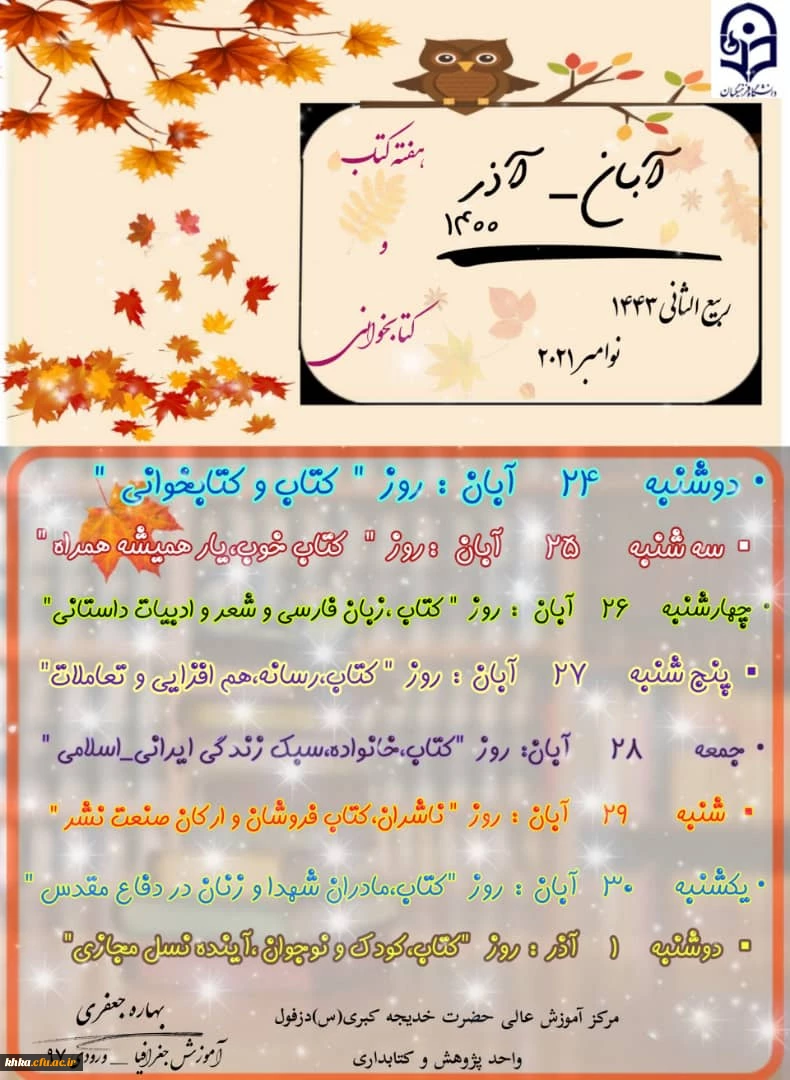 دانشگاه فرهنگیان
آبان _ آذر
۱۴۰۰
هفته کتاب
و
کتابخوانی
ربیع الثانی ۱۴۴۳
نوامبر ۲۰۲۱
• دوشنبه ۲۴ آبان : روز " کتاب و کتابخوانی "
▪ سه شنبه ۲۵ آبان :روز " کتاب خوب،یار همیشه همراه "
• چهارشنبه ۲۶ آبان : روز " کتاب ،زبان فارسی و شعر و ادبیات داستانی"
▪ پنج شنبه ۲۷ آبان : روز " کتاب،رسانه،هم افزایی و تعاملات"
• جمعه ۲۸ آبان: روز "کتاب،خانواده،سبک زندگی ایرانی_اسلامی "
▪ شنبه ۲۹ آبان : روز " ناشران،کتاب فروشان و ارکان صنعت نشر "
• یکشنبه ۳۰ آبان : روز "کتاب،مادران شهدا و زنان در دفاع مقدس "
▪ دوشنبه ۱ آذر : روز "کتاب،کودک و نوجوان ،آینده نسل مجازی"
مرکز آموزش عالی حضرت خدیجه کبری(س)دزفول
واحد پژوهش و کتابداری
بهاره جعفری
آموزش جغرافیا _ ورودی ۹۷
khka.cfu.ac.ir